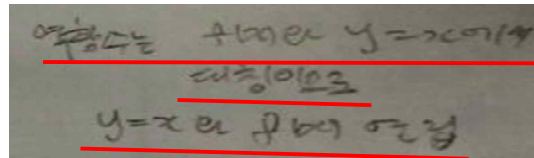 역함수는 f(x)와 y=x에서
대칭이므로
y=x와 f(x) 연립